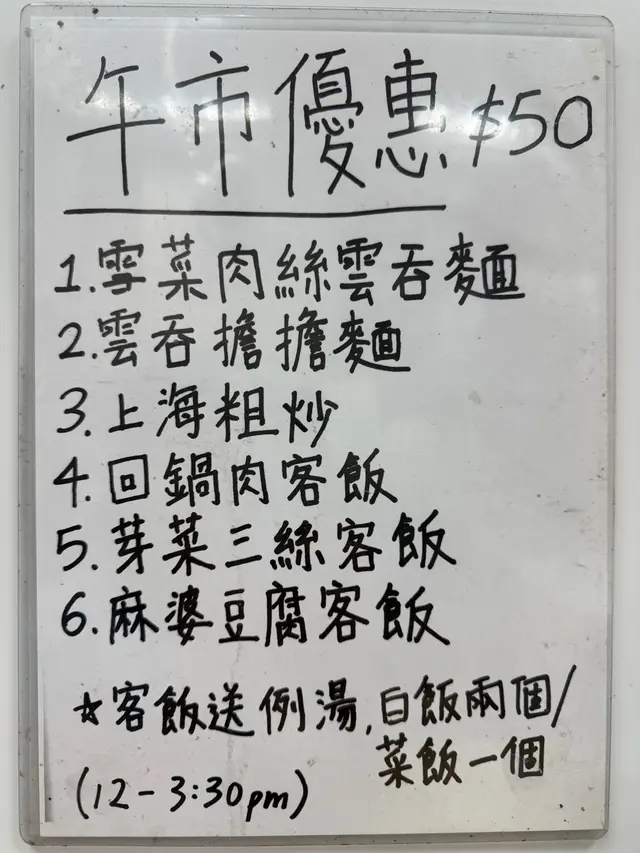 午市優惠 $50
1.雪菜肉絲雲吞麵
2.雲吞擔擔麵
3.上海粗炒
4.回鍋肉客飯
5.芽菜三絲客飯
6.麻婆豆腐客飯
☆客飯送例湯,白飯兩個/
菜飯一個
(12-3:30pm)